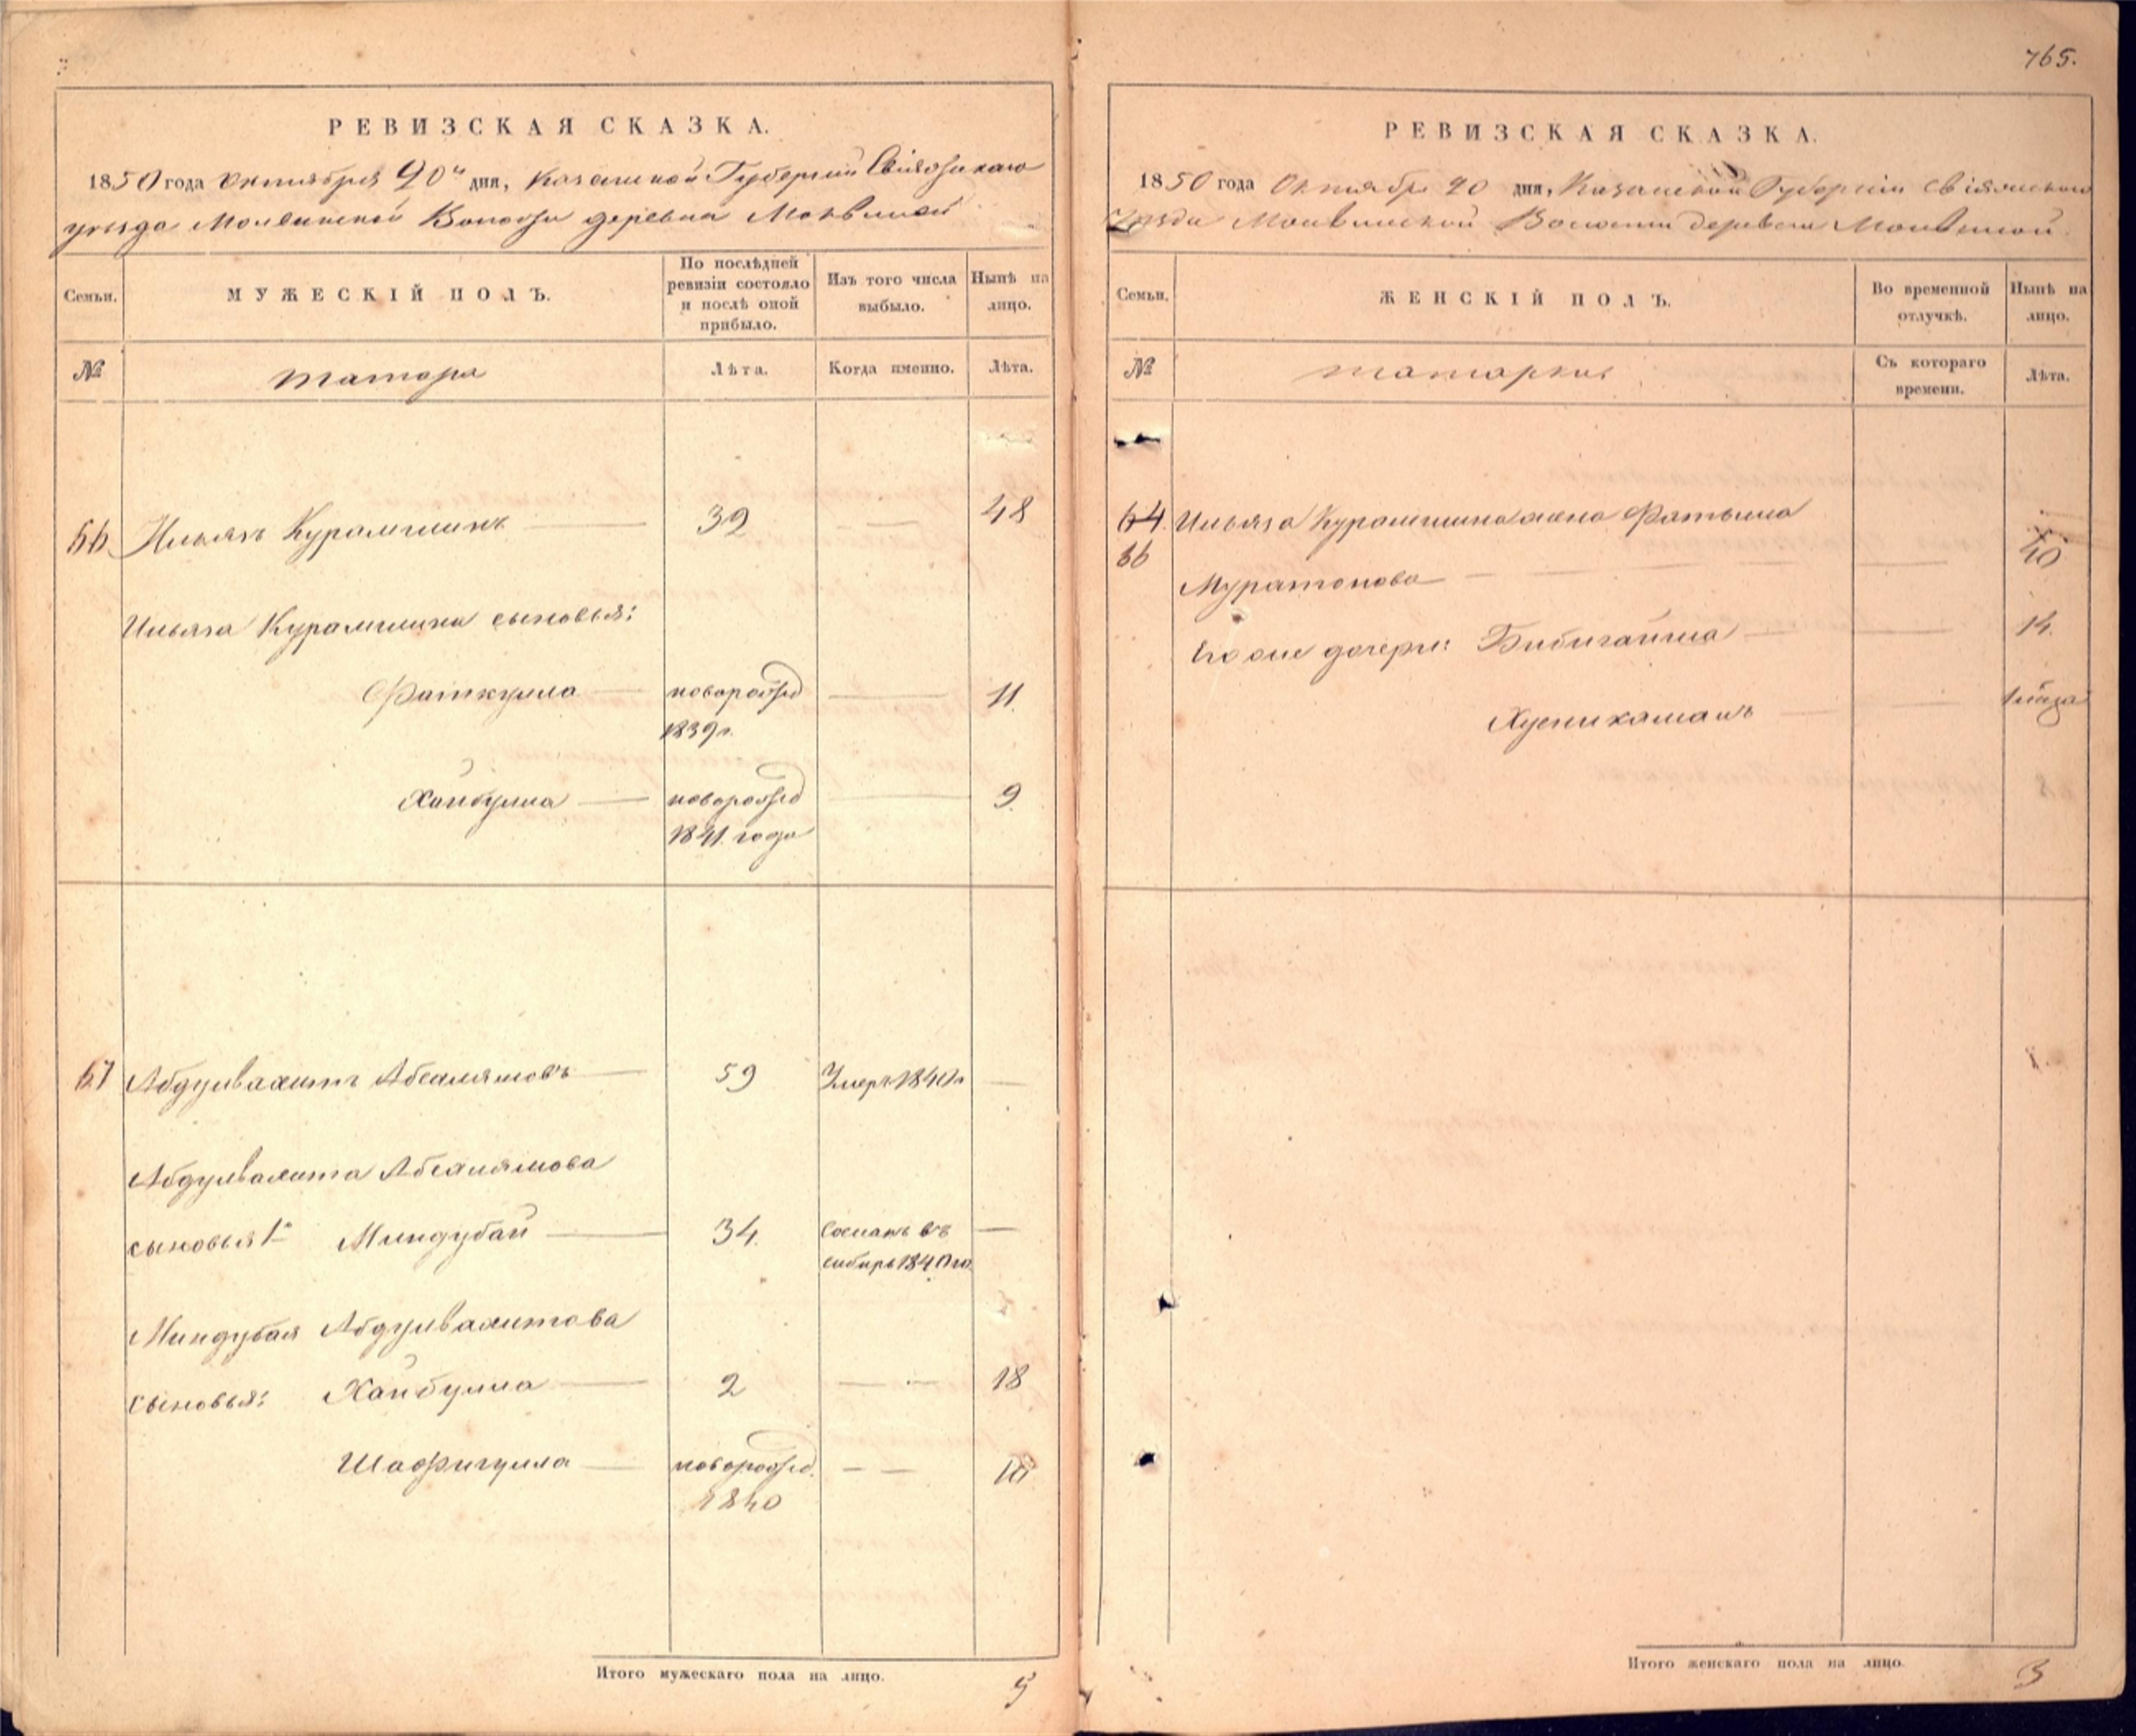 РЕВИЗСКАЯ СКАЗКА.
1850 года октября 20ⁿ дня, Казанской Губернии Свіяжскаго
уезда Молвинской Волости деревни Молвиной
Семьи.
МУЖЕСКІЙ ПОЛЪ.
По послѣдней ревизіи состояло и послѣ оной прибыло.
Изъ того числа выбыло.
Нынѣ на лицо.
№
татара
Лѣта.
Когда именно.
Лѣта.
66 Ильязъ Курамшинъ 32 48
Ильяза Курамшина сыновья:
Фаткулла новорожд 11.
1839г.
Хайбулла новорожд 9.
1841. года
67 Абдулвахитъ Абсалямовъ 59 Умеръ 1840г
Абдулвахита Абсалямова
сыновья 1й Миндубай 34. Сосланъ въ
сибирь 1840го.
Миндубая Абдулвахитова
сыновья: Хайбулла 2 18
Шафигулла новорожд. 10
1840
Итого мужескаго пола на лицо. 5
765.
РЕВИЗСКАЯ СКАЗКА.
1850 года Октября 20 дня, Казанской Губерніи Свіяжскаго
Уезда Молвинской Волости деревни Молвиной.
Семьи.
ЖЕНСКІЙ ПОЛЪ.
Во временной отлучкѣ.
Нынѣ на лицо.
№
татарки
Съ котораго времени.
Лѣта.
64. Ильяза Курамшина жена Фатыма
66 40
Муратова
Его же дочери: Бибигайша 14.
Хуснизаманъ
Итого женскаго пола на лицо. 3